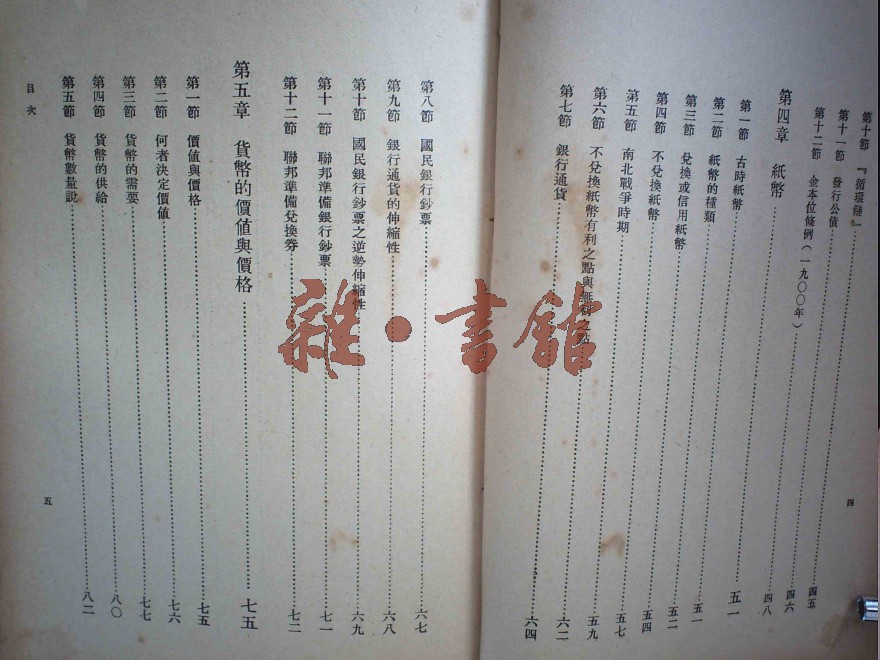 第十節 『循環鏈』……四五
第十一節 發行公債……四六
第十二節 金本位條例(一九〇〇年)……四八
第四章 紙幣……五一
第一節 古時紙幣……五一
第二節 紙幣的種類……五二
第三節 兌換或信用紙幣……五四
第四節 不兌換紙幣……五七
第五節 南北戰爭時期……五九
第六節 不兌換紙幣有利之點與無利之點……六二
第七節 銀行通貨……六四
四
第八節 國民銀行鈔票……六七
第九節 銀行通貨的伸縮性……六八
第十節 國民銀行鈔票之逆勢伸縮性……六九
第十一節 聯邦準備銀行鈔票……七一
第十二節 聯邦準備兌換券……七二
第五章 貨幣的價值與價格……七五
第一節 價值與價格……七五
第二節 何者決定價值……七六
第三節 貨幣的需要……七七
第四節 貨幣的供給……八〇
第五節 貨幣數量說……八二
目次
五
雜·書館